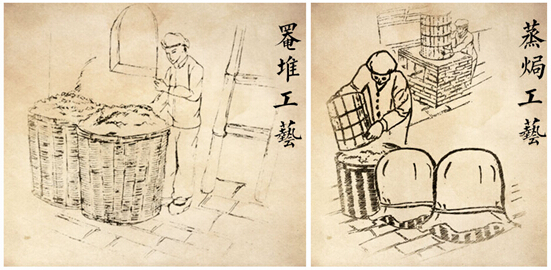 罨堆工藝
蒸焗工藝